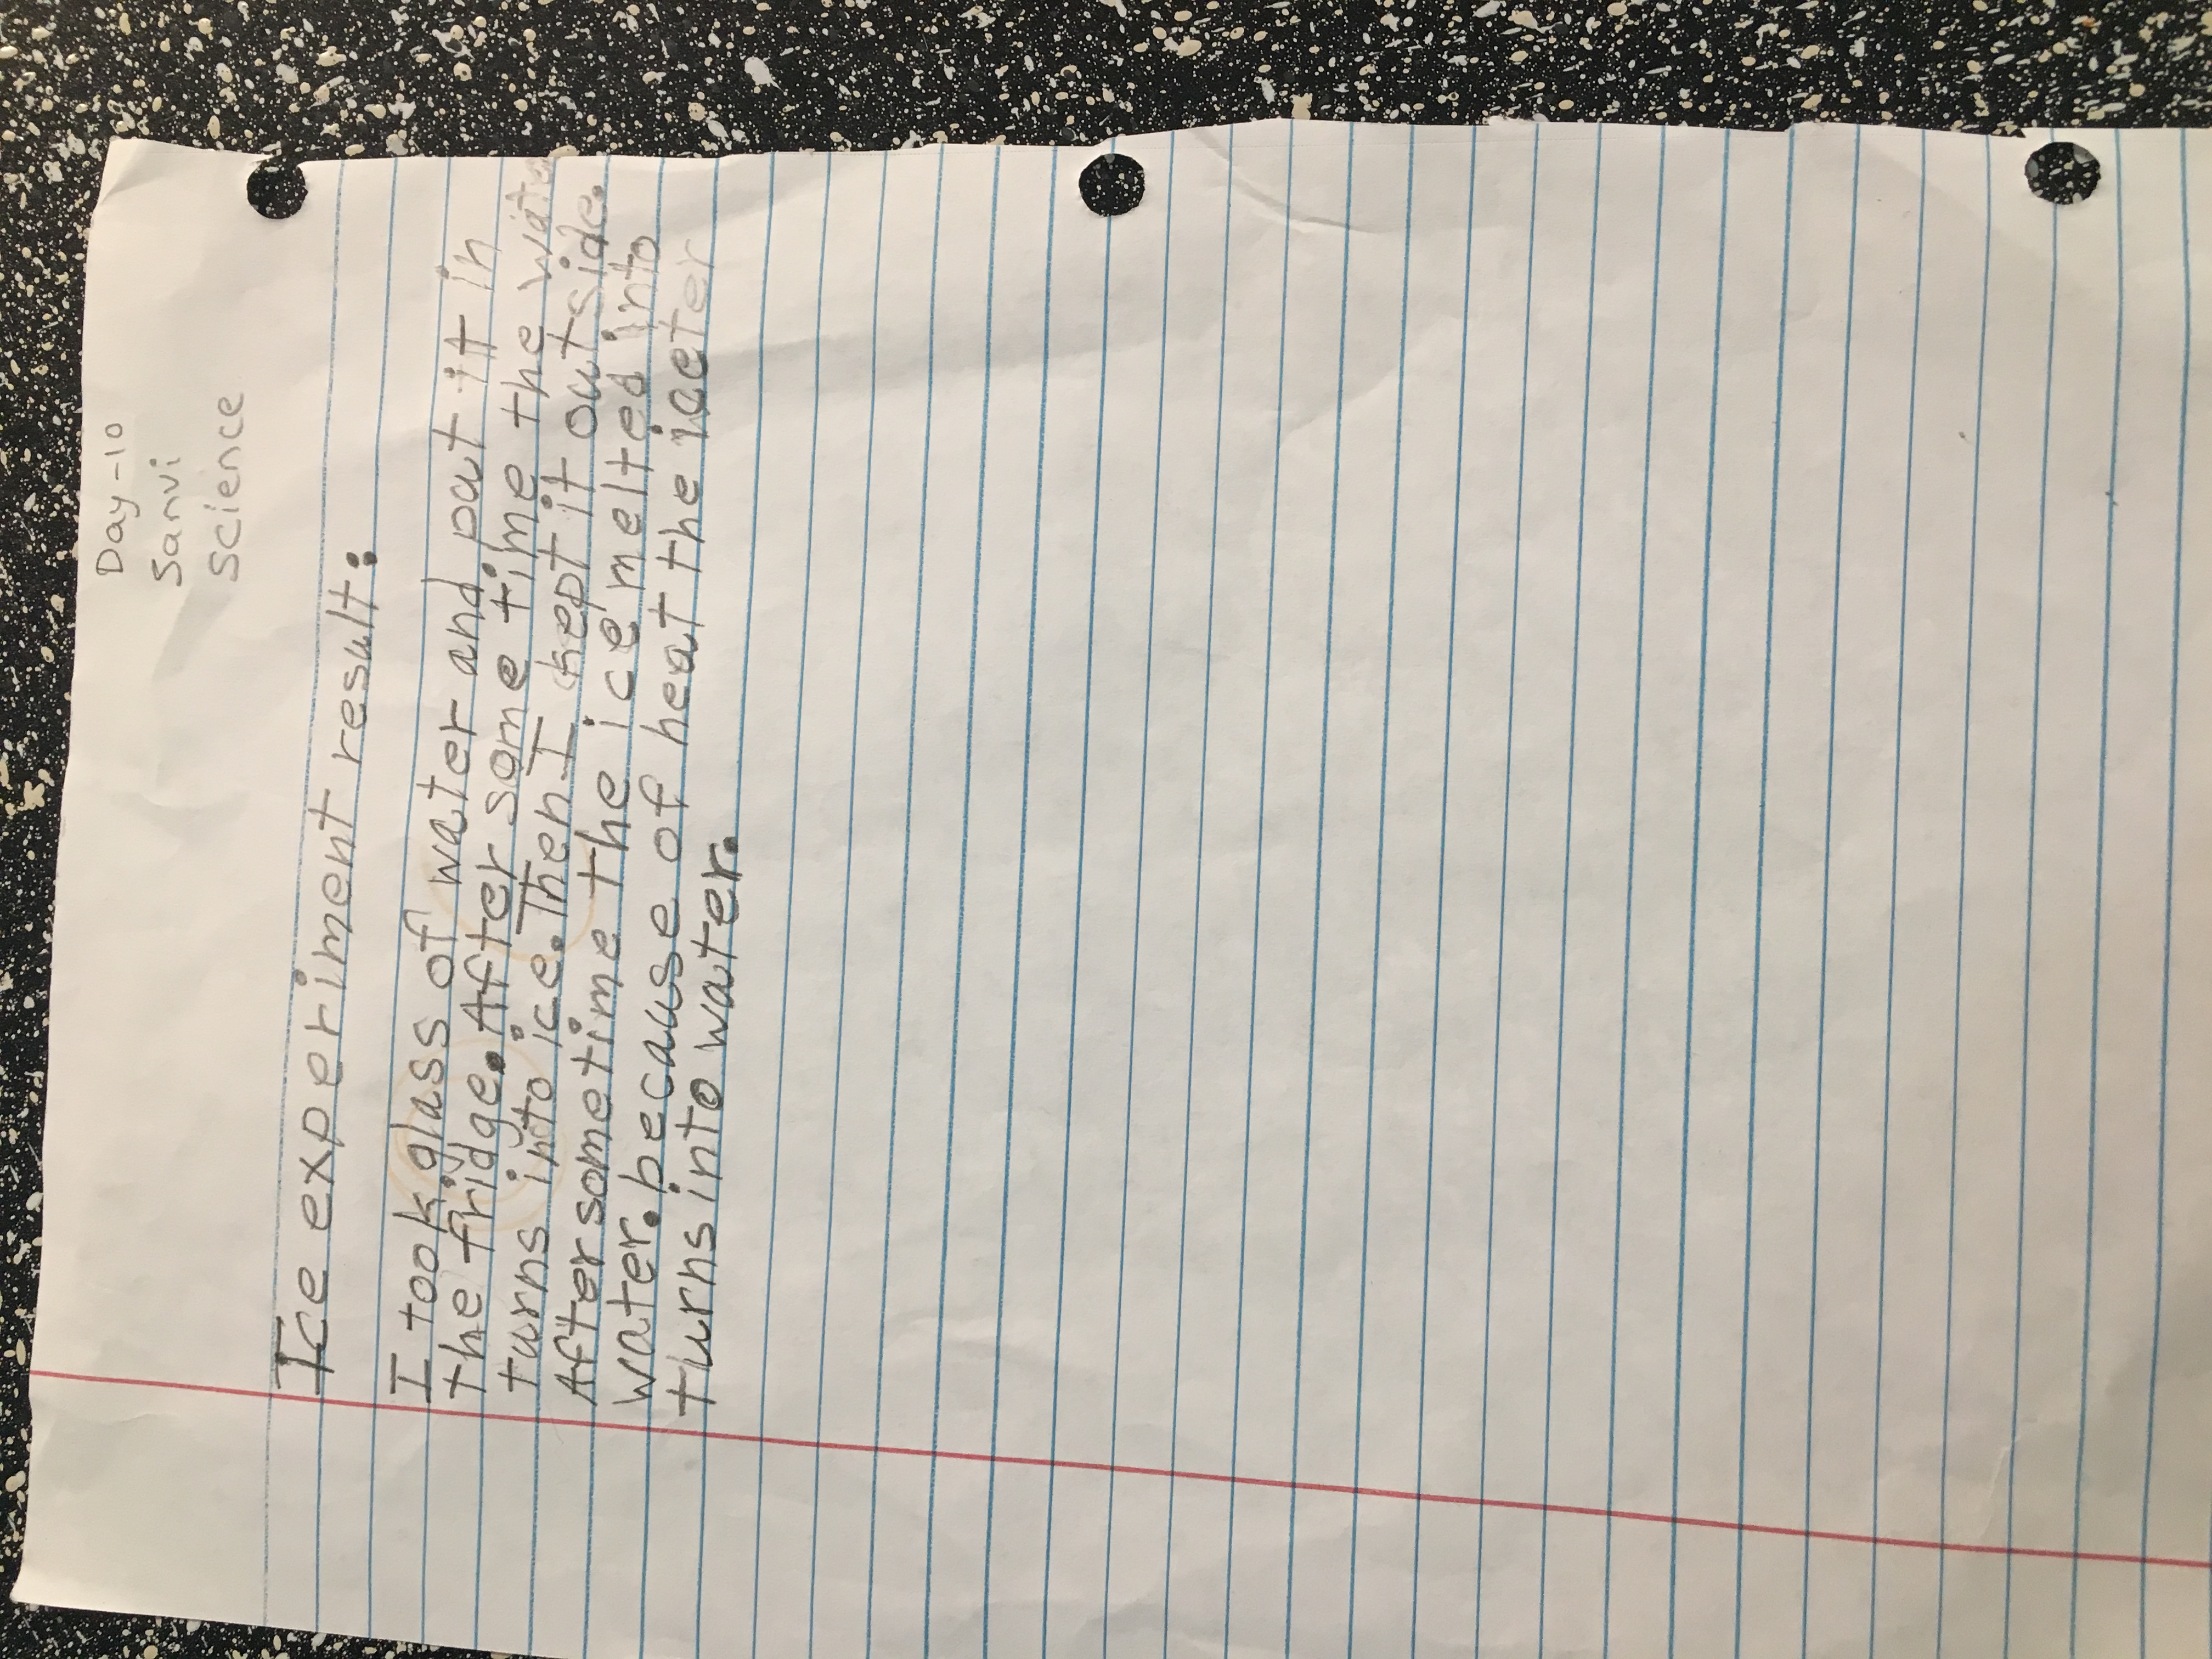 Day-10
Sanvi
Science
Ice experiment result:
I took glass of water and put it in
the fridge. After some time the water
turns into ice. Then I kept it outside.
After sometime the ice melted into
water. because of heat the ice
turns into water.